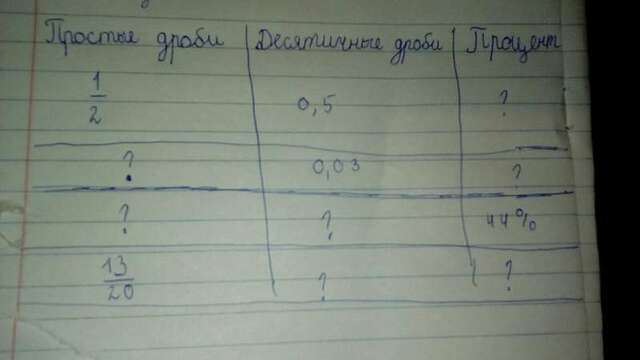 Простые дроби Десятичные дроби Процент
1/2 0,5 ?
? 0,03 ?
? ? 44%
13/20 ? ?